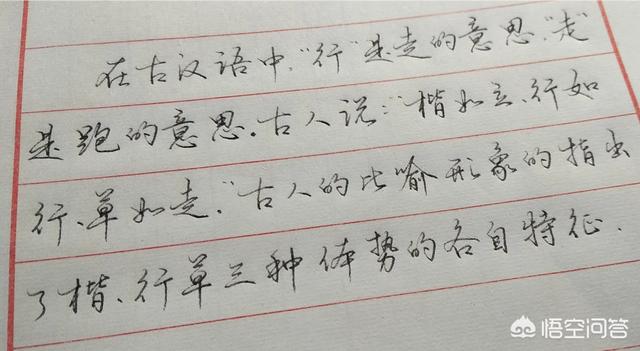 在古汉语中，“行”是走的意思，“走”
是跑的意思。古人说：“楷如立、行如
行、草如走。”古人的比喻形象的指出
了楷、行草三种体势的各自特征．
悟空问答